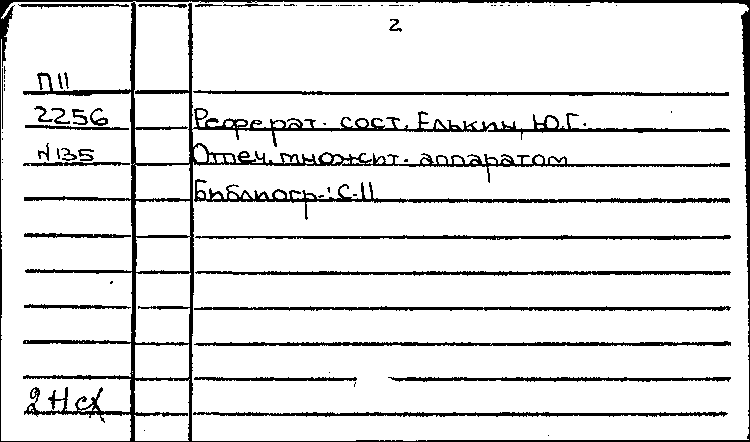 2
П11
2256 Реферат. сост. Елькин, Ю.Г.
N135 Отпеч. множит. аппаратом
Библиогр.: С.11